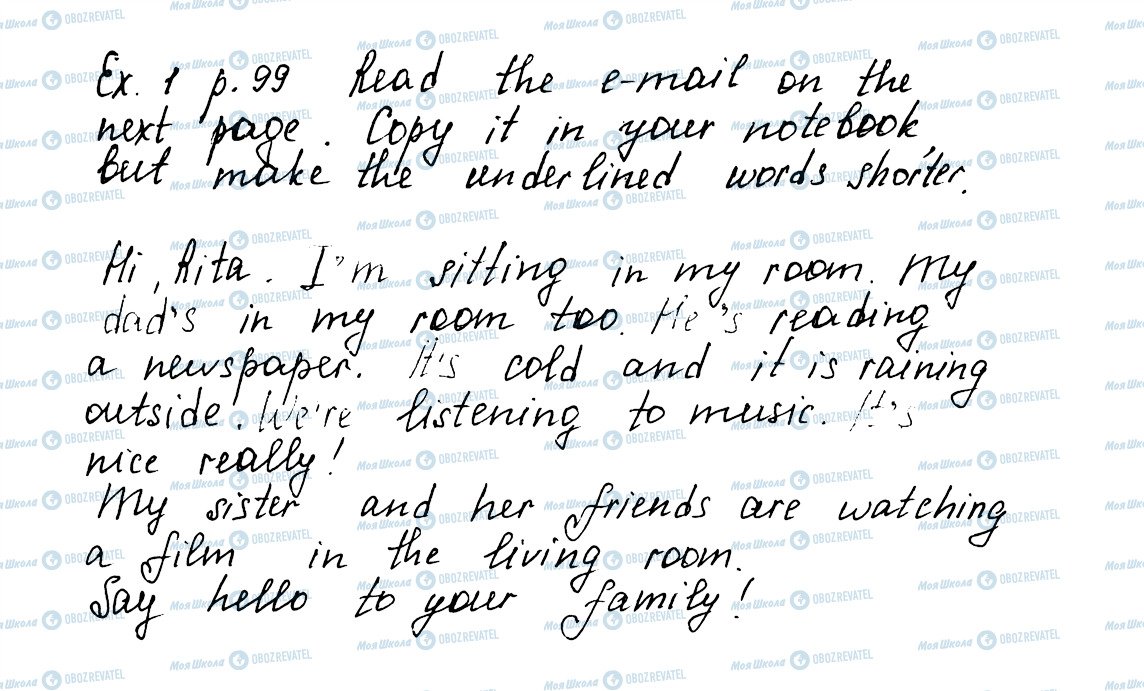 Ex. 1 p. 99 Read the e-mail on the
next page. Copy it in your notebook
but make the underlined words shorter.
Hi, Rita. I'm sitting in my room. My
dad's in my room too. He's reading
a newspaper. It's cold and it is raining
outside. We're listening to music. It's
nice really!
My sister and her friends are watching
a film in the living room.
Say hello to your family!